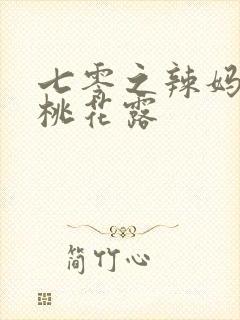 七零之辣妈
桃花露
简竹心